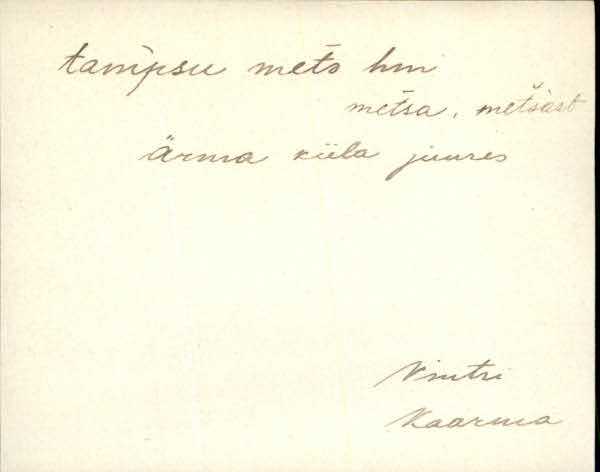 tamipsu mets hrn
metsa, metsast
ärma küla juures
Vintri
Kaarma